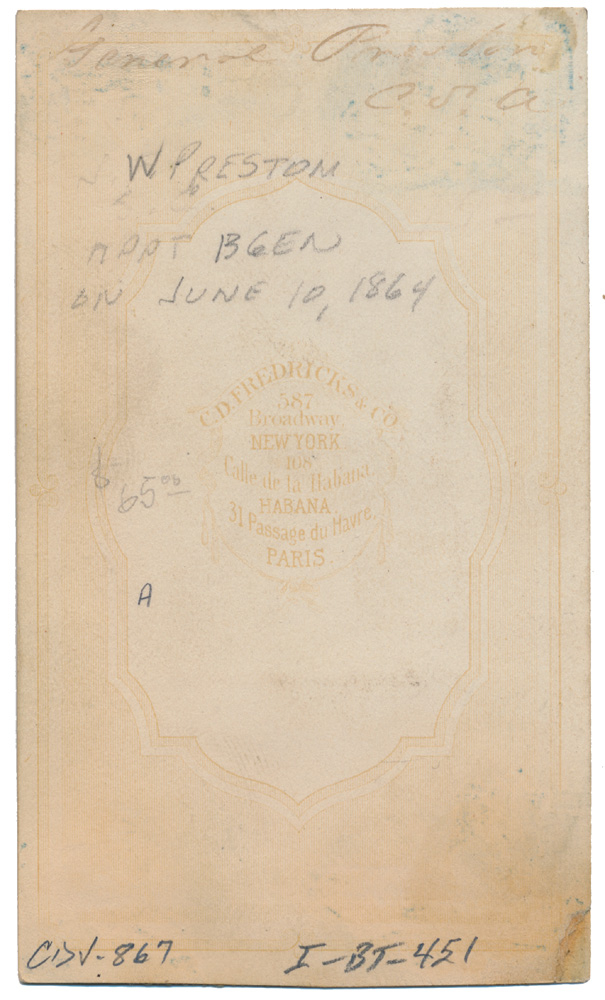 General Preston
C. S. A
W PRESTON
APPT BGEN
ON JUNE 10, 1864
C.D. FREDRICKS & CO.
587
Broadway.
NEW YORK
108
Calle de la Habana.
HABANA.
31 Passage du Havre.
PARIS
$
65.00
A
CDV-867
I-BT-451